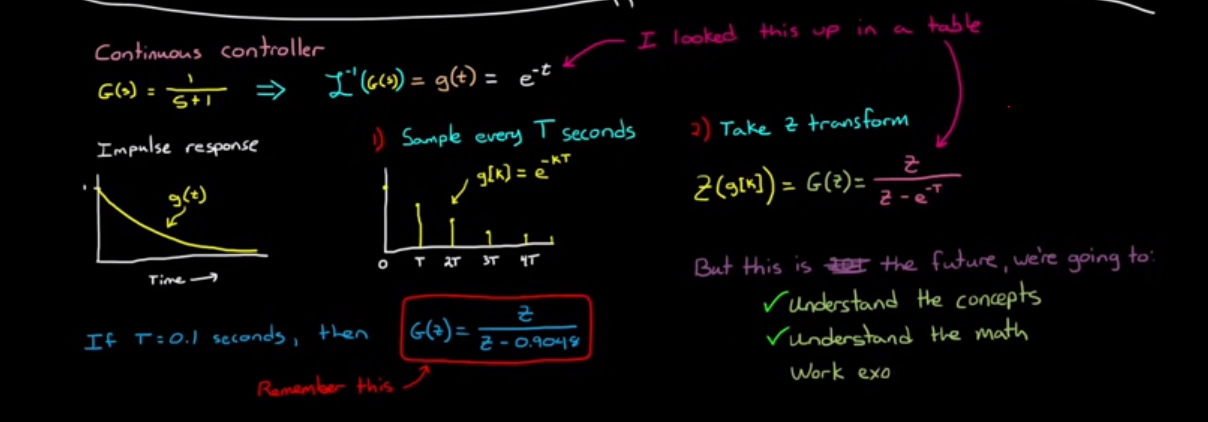 Continuous controller
G(s) = 1/(s+1) ⇒ ℒ⁻¹(G(s)) = g(t) = e^-t
I looked this up in a table
Impulse response
g(t)
Time →
1) Sample every T seconds
g[k] = e^-kT
0 T 2T 3T 4T
2) Take z transform
Z(g[k]) = G(z) = z/(z - e^-T)
If T = 0.1 seconds, then G(z) = z/(z - 0.9048)
Remember this
But this is the future, we're going to:
✓ Understand the concepts
✓ Understand the math
Work exa